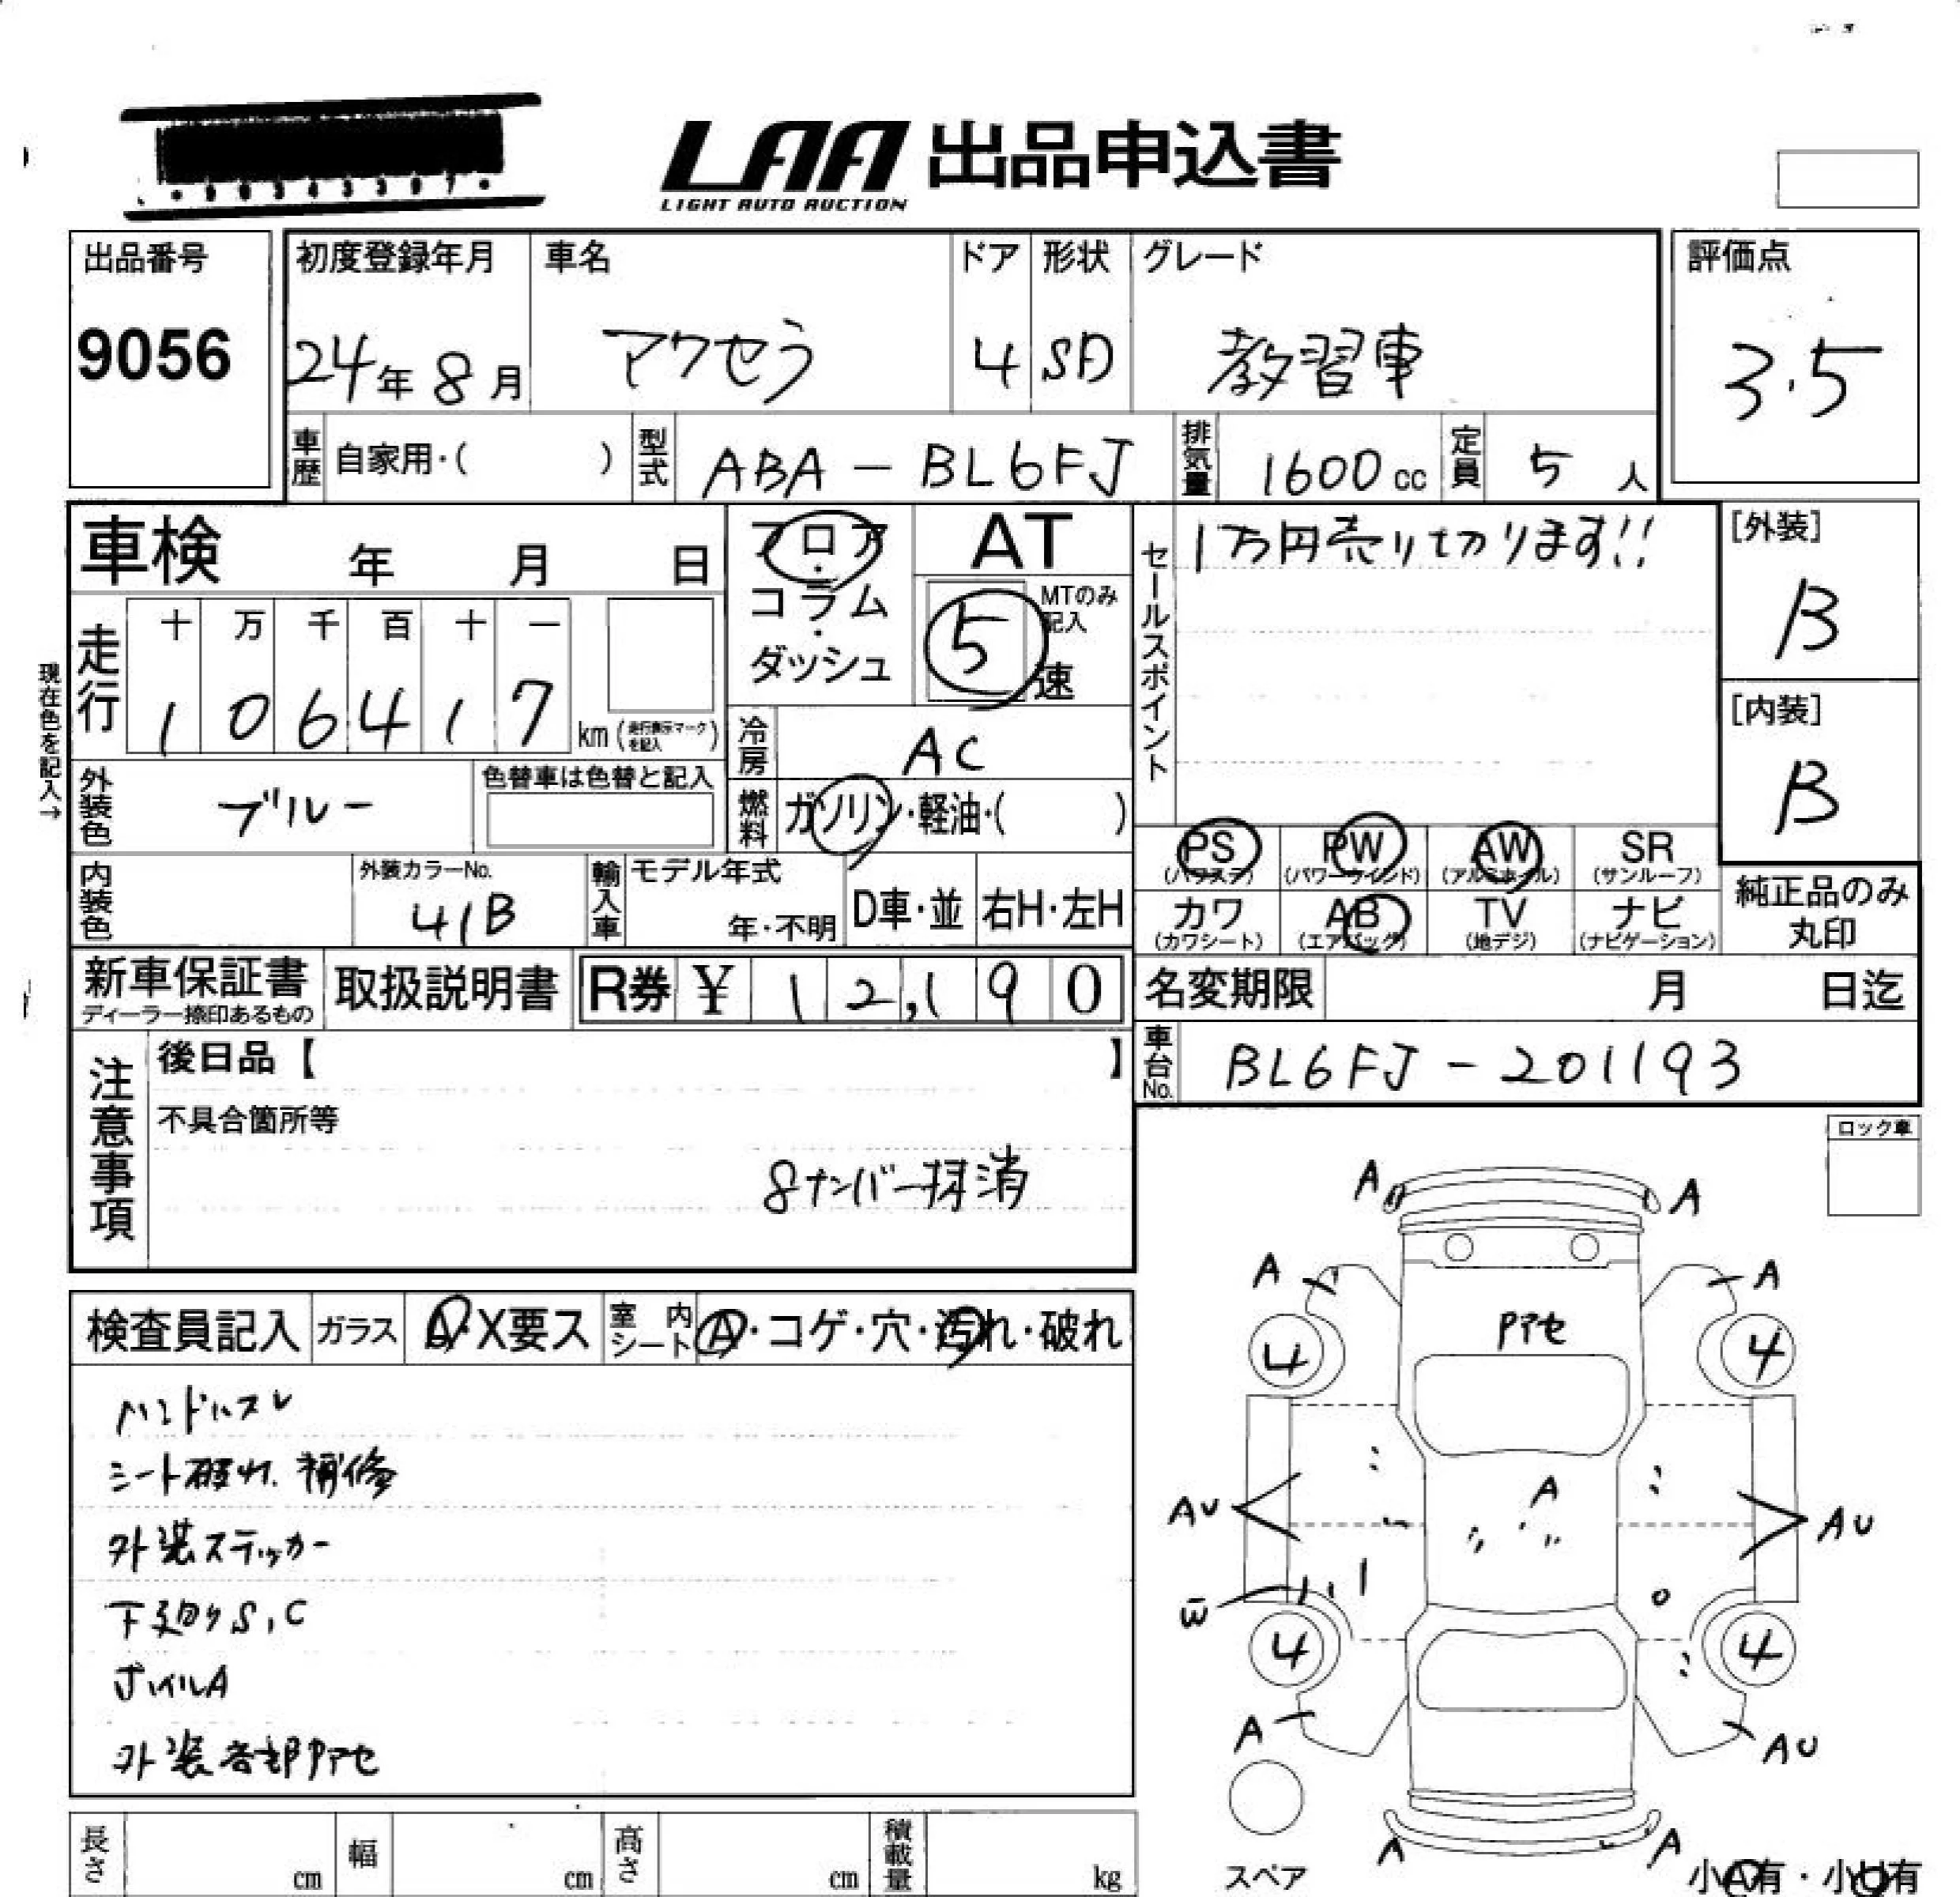 LAA 出品申込書
LIGHT AUTO AUCTION
出品番号
9056
初度登録年月
24年 8月
車名
アクセラ
ドア
4
形状
SD
グレード
教習車
評価点
3.5
車歴 自家用・( )
型式 ABA-BL6FJ
排気量 1600cc
定員 5人
車検 年 月 日
フロア・コラム・ダッシュ
AT
5 速
MTのみ記入
セールスポイント
1万円売り切ります!!
[外装]
B
[内装]
B
現在色を記入→
走行
十 万 千 百 十 一
1 0 6 4 1 7 km (走行表示マークを記入)
冷房 AC
外装色 ブルー
色替車は色替と記入
燃料 ガソリン・軽油・( )
PS (パワステ)
PW (パワーウインド)
AW (アルミホイル)
SR (サンルーフ)
カワ (カワシート)
AB (エアバッグ)
TV (地デジ)
ナビ (ナビゲーション)
純正品のみ丸印
内装色
外装カラーNo.
41B
輸入車
モデル年式
年・不明
D車・並
右H・左H
新車保証書
ディーラー捺印あるもの
取扱説明書
R券 ¥ 12,190
名変期限 月 日迄
車台No. BL6FJ-201193
注意事項
後日品【 】
不具合箇所等
8ナンバー抹消
ロック車
検査員記入
ガラス A・X要ス
室内シート A・コゲ・穴・汚れ・破れ
ハンドルスレ
シート破れ、補修
外装ステッカー
下廻りS,C
ホイルA
外装各部Pアセ
A A
A A
4 Pアセ 4
AU A AU
W
4 4
A AU
A A
スペア
小A有・小U有
長さ cm
幅 cm
高さ cm
積載量 kg